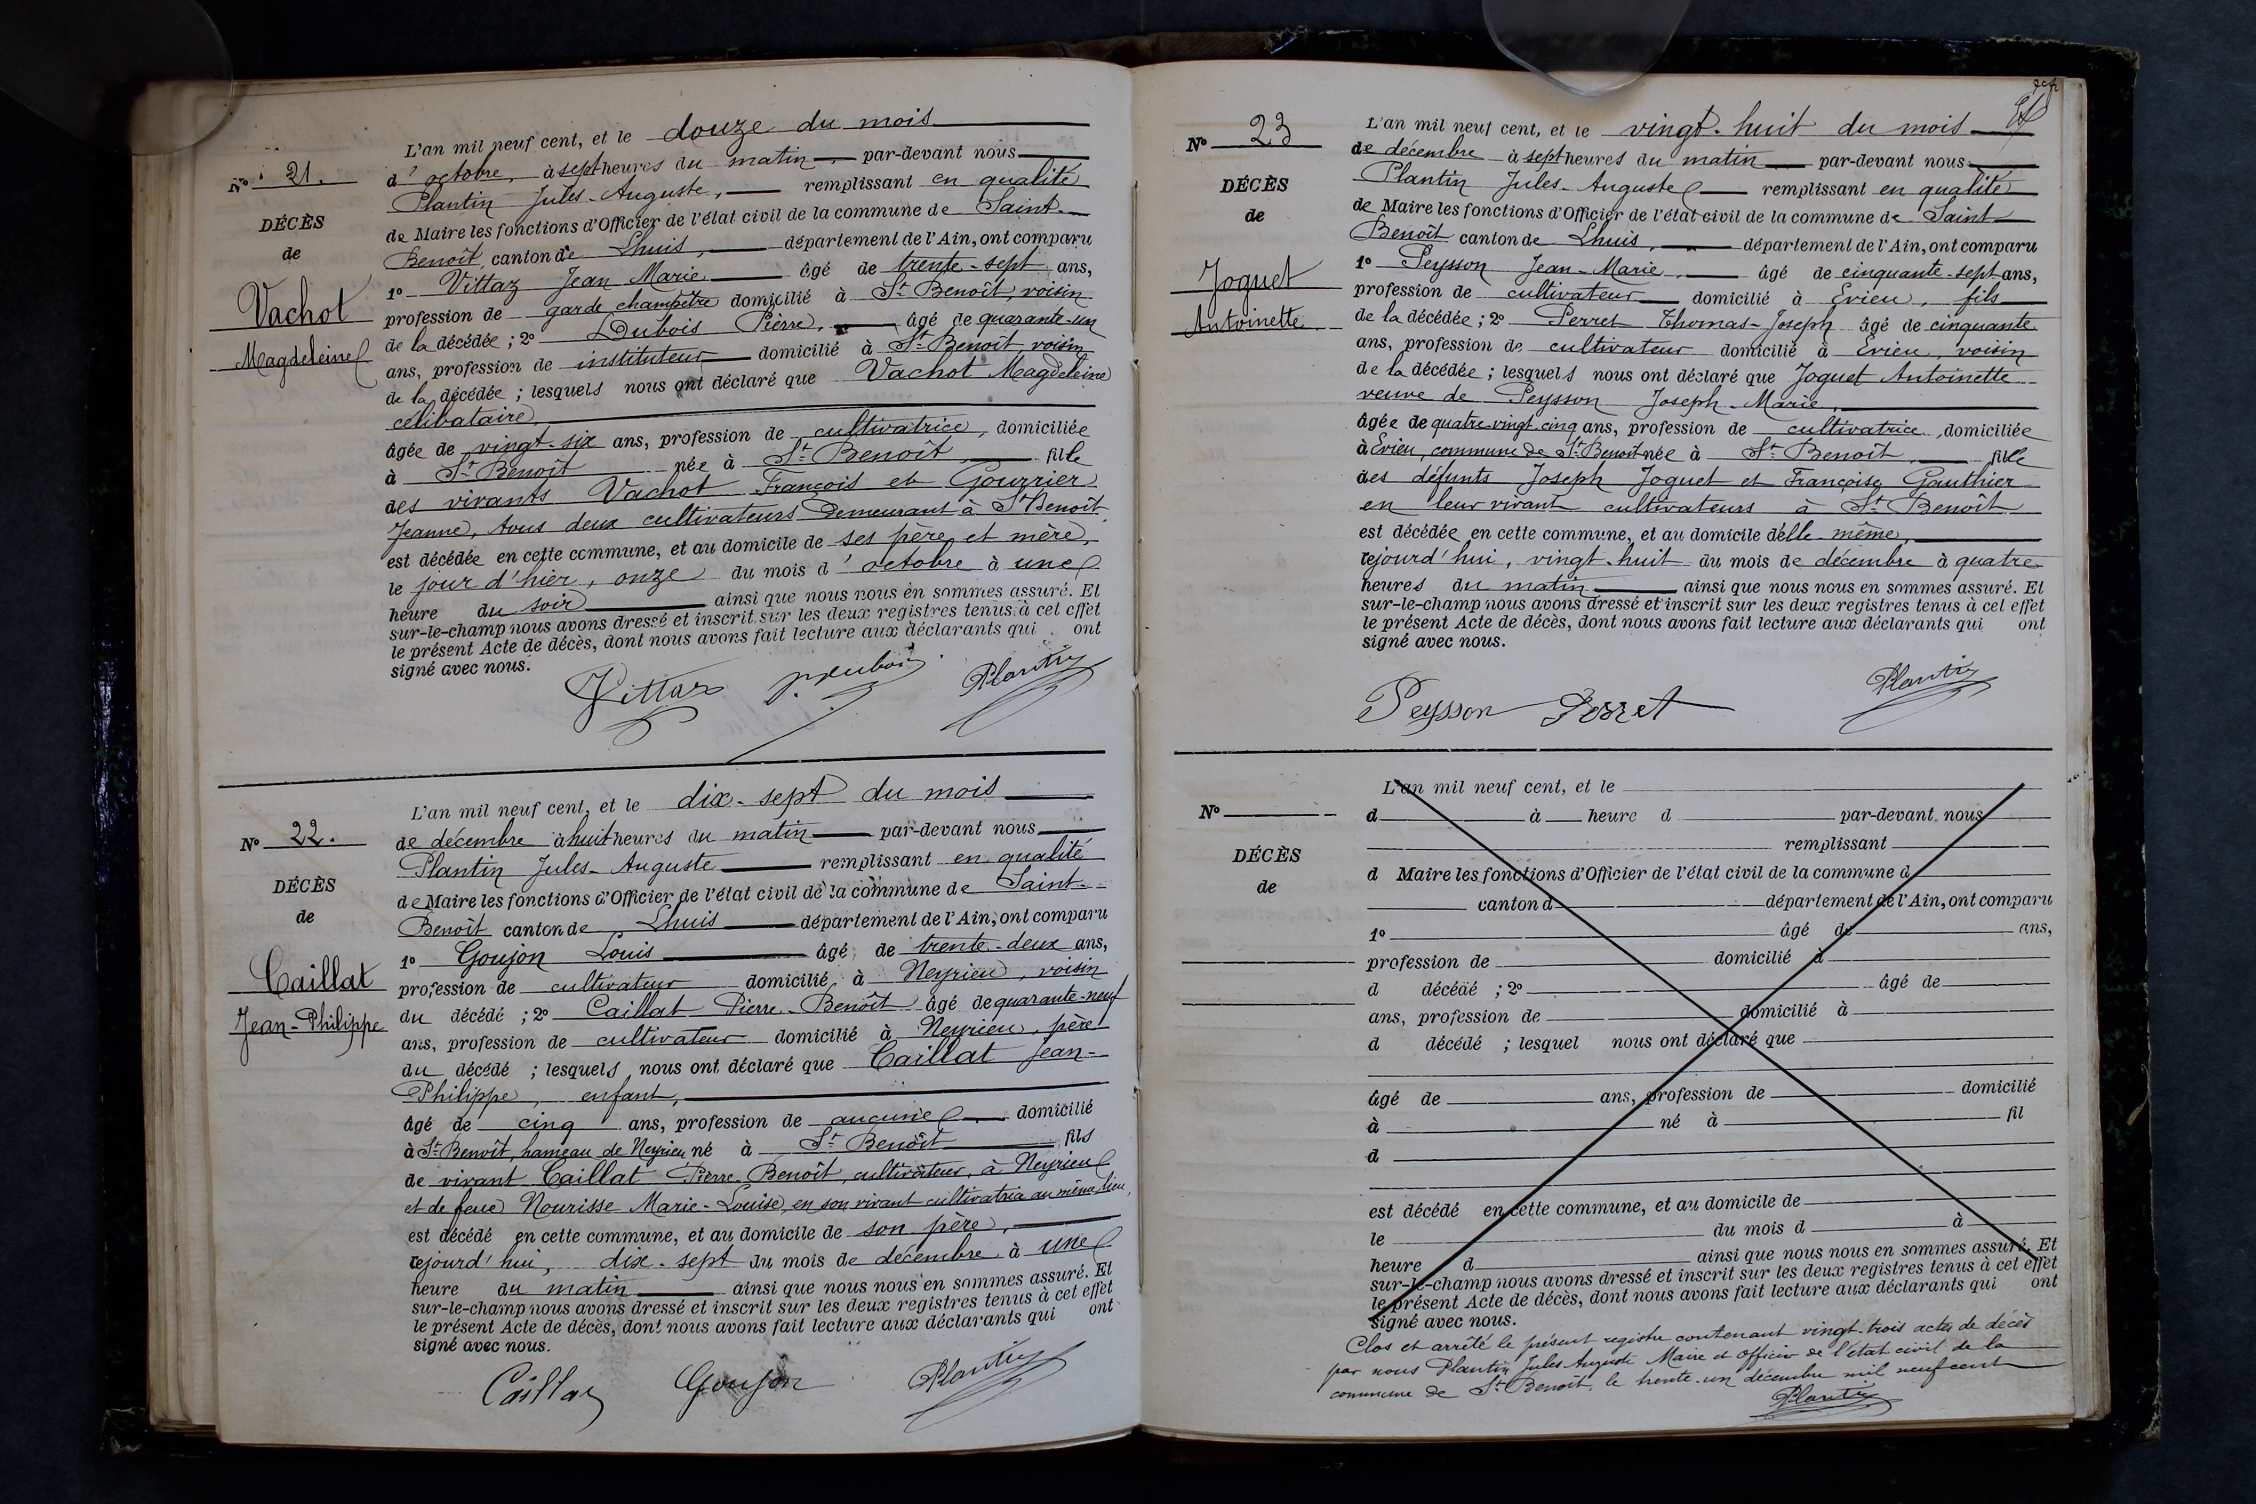 L'an mil neuf cent, et le douze du mois
d'octobre, à sept heures du matin, par-devant nous
Plantin Jules-Auguste, remplissant en qualité
de Maire les fonctions d'Officier de l'état civil de la commune de Saint-
Benoît, canton de Lhuis, département de l'Ain, ont comparu
1º Vittaz Jean Marie âgé de trente-sept ans,
profession de garde champêtre domicilié à St Benoît, voisin
de la décédée ; 2º Dubois Pierre, âgé de quarante-un
ans, profession de instituteur domicilié à St Benoît, voisin
de la décédée ; lesquels nous ont déclaré que Vachot Magdeleine
célibataire,
âgée de vingt-six ans, profession de cultivatrice, domiciliée
à St Benoît née à St Benoît, fille
des vivants Vachot François et Gourrier
Jeanne, tous deux cultivateurs demeurant à St Benoît,
est décédée en cette commune, et au domicile de ses père et mère,
le jour d'hier, onze du mois d'octobre à une
heure du soir ainsi que nous nous en sommes assuré. Et
sur-le-champ nous avons dressé et inscrit sur les deux registres tenus à cet effet
le présent Acte de décès, dont nous avons fait lecture aux déclarants qui ont
signé avec nous.
Vittaz P. Dubois Plantin
Nº 21.
DÉCÈS
de
Vachot
Magdeleine
L'an mil neuf cent, et le dix-sept du mois
de décembre à huit heures du matin par-devant nous
Plantin Jules-Auguste remplissant en qualité
de Maire les fonctions d'Officier de l'état civil de la commune de Saint-
Benoît canton de Lhuis département de l'Ain, ont comparu
1º Goujon Louis âgé de trente-deux ans,
profession de cultivateur domicilié à Neyrieu, voisin
du décédé ; 2º Caillat Pierre-Benoît âgé de quarante-neuf
ans, profession de cultivateur domicilié à Neyrieu, père
du décédé ; lesquels nous ont déclaré que Caillat Jean-
Philippe, enfant,
âgé de cinq ans, profession de aucune domicilié
à St Benoît, hameau de Neyrieu né à St Benoît fils
de vivant Caillat Pierre-Benoît, cultivateur, à Neyrieu
et de feue Nourisse Marie-Louise, en son vivant cultivatrice au même lieu,
est décédé en cette commune, et au domicile de son père,
cejourd'hui, dix-sept du mois de décembre à une
heure du matin ainsi que nous nous en sommes assuré. Et
sur-le-champ nous avons dressé et inscrit sur les deux registres tenus à cet effet
le présent Acte de décès, dont nous avons fait lecture aux déclarants qui ont
signé avec nous.
Caillat Goujon Plantin
Nº 22.
DÉCÈS
de
Caillat
Jean-Philippe
L'an mil neuf cent, et le vingt-huit du mois
de décembre à sept heures du matin par-devant nous
Plantin Jules-Auguste remplissant en qualité
de Maire les fonctions d'Officier de l'état civil de la commune de Saint-
Benoît canton de Lhuis, département de l'Ain, ont comparu
1º Peysson Jean-Marie, âgé de cinquante-sept ans,
profession de cultivateur domicilié à Evieu, fils
de la décédée ; 2º Perret Thomas-Joseph âgé de cinquante
ans, profession de cultivateur domicilié à Evieu, voisin
de la décédée ; lesquels nous ont déclaré que Joguet Antoinette
veuve de Peysson Joseph-Marie,
âgée de quatre-vingt-cinq ans, profession de cultivatrice, domiciliée
à Evieu, commune de St Benoît née à St Benoît, fille
des défunts Joseph Joguet et Françoise Gauthier
en leur vivant cultivateurs à St Benoît
est décédée en cette commune, et au domicile d'elle même,
cejourd'hui, vingt-huit du mois de décembre à quatre
heures du matin ainsi que nous nous en sommes assuré. Et
sur-le-champ nous avons dressé et inscrit sur les deux registres tenus à cet effet
le présent Acte de décès, dont nous avons fait lecture aux déclarants qui ont
signé avec nous.
Peysson Perret Plantin
Nº 23
DÉCÈS
de
Joguet
Antoinette
L'an mil neuf cent, et le
d à heure d par-devant nous
remplissant
d Maire les fonctions d'Officier de l'état civil de la commune d
canton d département de l'Ain, ont comparu
1º âgé de ans,
profession de domicilié à
d décédé ; 2º âgé de
ans, profession de domicilié à
d décédé ; lesquel nous ont déclaré que
âgé de ans, profession de domicilié
à né à fil
d
est décédé en cette commune, et au domicile de
le du mois d à
heure d ainsi que nous nous en sommes assuré. Et
sur-le-champ nous avons dressé et inscrit sur les deux registres tenus à cet effet
le présent Acte de décès, dont nous avons fait lecture aux déclarants qui ont
signé avec nous.
Nº
DÉCÈS
de
Clos et arrêté le présent registre contenant vingt-trois actes de décès
par nous Plantin Jules Auguste Maire et officier de l'état civil de la
commune de St Benoît, le trente-un décembre mil neuf cent
Plantin